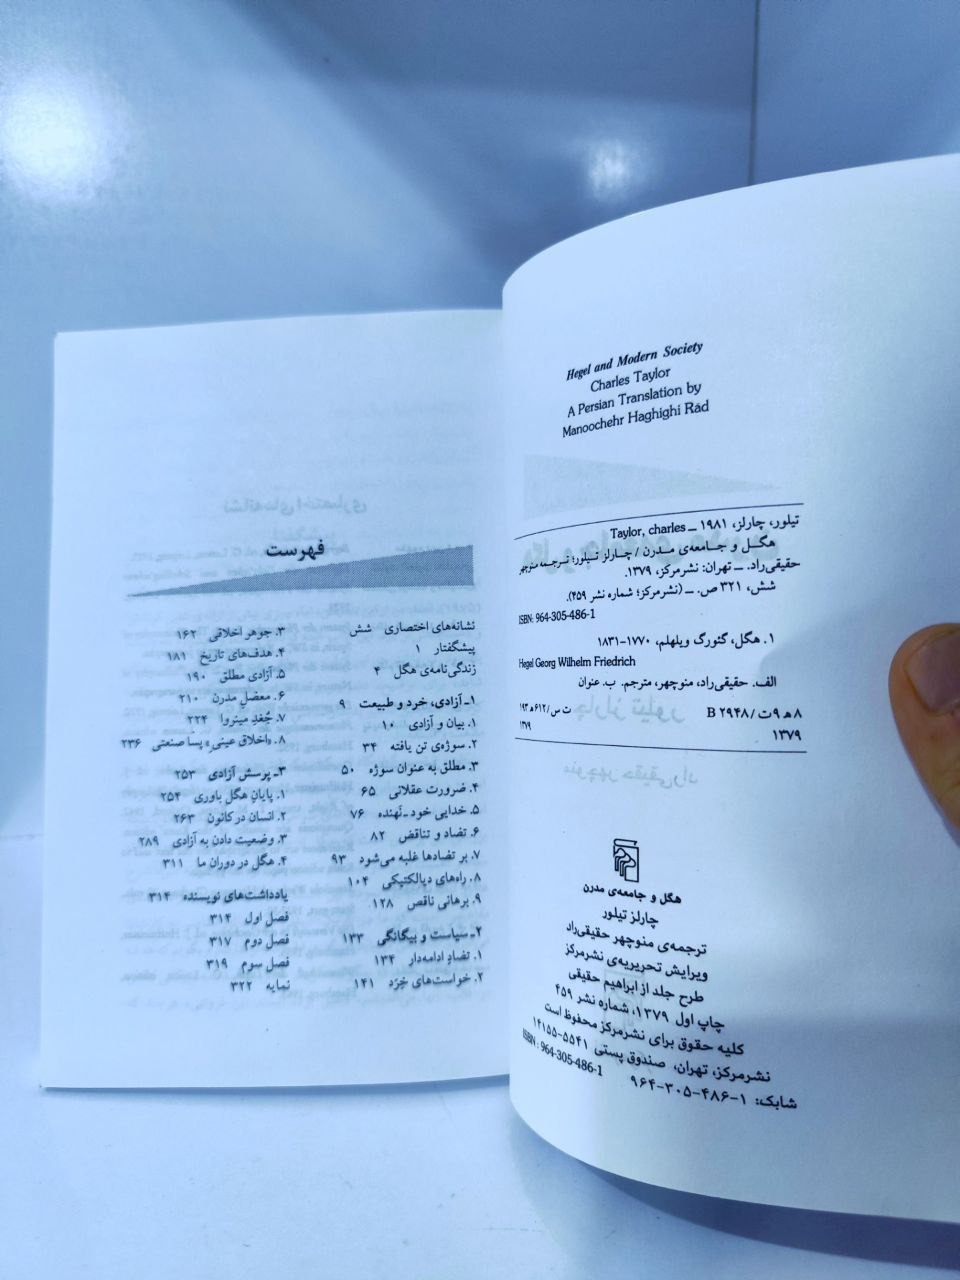 Hegel and Modern Society
Charles Taylor
A Persian Translation by
Manoochehr Haghighi Rad
تیلور، چارلز، ۱۹۸۱ – Taylor, charles
هگل و جامعه‌ی مدرن / چارلز تیلور؛ ترجمه منوچهر
حقیقی‌راد. – تهران: نشرمرکز، ۱۳۷۹.
شش، ۳۲۱ ص. – (نشرمرکز؛ شماره نشر ۴۵۹).
ISBN: 964-305-486-1
۱. هگل، گئورگ ویلهلم، ۱۷۷۰-۱۸۳۱
Hegel Georg Wilhelm Friedrich
الف. حقیقی‌راد، منوچهر، مترجم. ب. عنوان
۸ ه ۹ ت / B ۲۹۴۸
ت س/۶۱۲ ه ۱۹۳
۱۳۷۹
۱۳۷۹
هگل و جامعه‌ی مدرن
چارلز تیلور
ترجمه‌ی منوچهر حقیقی‌راد
ویرایش تحریریه‌ی نشرمرکز
طرح جلد از ابراهیم حقیقی
چاپ اول ۱۳۷۹، شماره نشر ۴۵۹
کلیه حقوق برای نشرمرکز محفوظ است
نشرمرکز، تهران، صندوق پستی ۵۵۴۱-۱۴۱۵۵
ISBN: 964-305-486-1
شابک: ۱-۴۸۶-۳۰۵-۹۶۴
فهرست
نشانه‌های اختصاری شش
پیشگفتار ۱
زندگی‌نامه‌ی هگل ۴
۱ـ آزادی، خرد و طبیعت ۹
۱. بیان و آزادی ۱۰
۲. سوژه‌ی تن یافته ۳۴
۳. مطلق به عنوان سوژه ۵۰
۴. ضرورت عقلانی ۶۵
۵. خدایی خود ـ نَهنده ۷۶
۶. تضاد و تناقض ۸۲
۷. بر تضادها غلبه می‌شود ۹۳
۸. راه‌های دیالکتیکی ۱۰۴
۹. برهانی ناقص ۱۲۸
۲ـ سیاست و بیگانگی ۱۳۳
۱. تضادِ ادامه‌دار ۱۳۴
۲. خواست‌های خِرَد ۱۴۱
۳. جوهر اخلاقی ۱۶۲
۴. هدف‌های تاریخ ۱۸۱
۵. آزادی مطلق ۱۹۰
۶. معضلِ مدرن ۲۱۰
۷. جُغدِ مینروا ۲۲۴
۸. «اخلاق عینی» پسا صنعتی ۲۳۶
۳ـ پرسش آزادی ۲۵۳
۱. پایانِ هگل باوری ۲۵۴
۲. انسان در کانون ۲۶۳
۳. وضعیت دادن به آزادی ۲۸۹
۴. هگل در دوران ما ۳۱۱
یادداشت‌های نویسنده ۳۱۴
فصل اول ۳۱۴
فصل دوم ۳۱۷
فصل سوم ۳۱۹
نمایه ۳۲۲